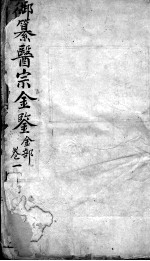 御纂醫宗金鑒全部
卷一